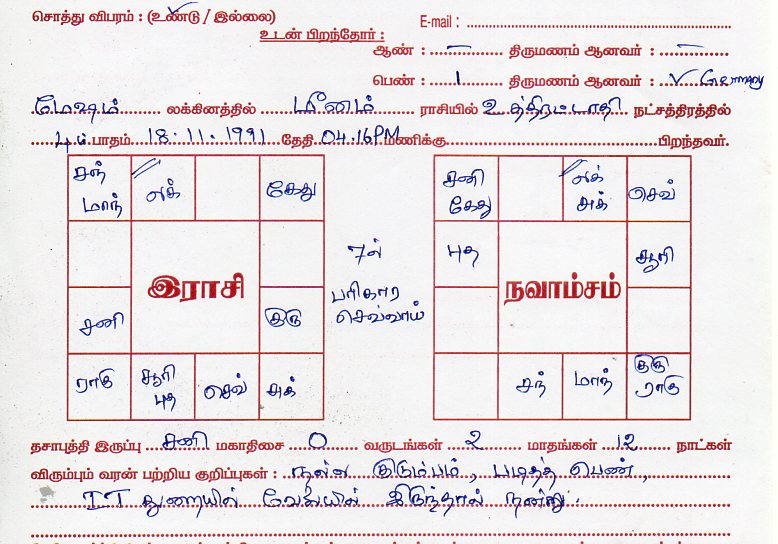 சொத்து விபரம் : (உண்டு / இல்லை)
E-mail :
உடன் பிறந்தோர் :
ஆண் : – திருமணம் ஆனவர் : –
பெண் : 1 திருமணம் ஆனவர் : ✓ Germany
மேஷம் லக்கினத்தில் மீனம் ராசியில் உத்திரட்டாதி நட்சத்திரத்தில்
4ம் பாதம் 18.11.1991 தேதி 04.16PM மணிக்கு பிறந்தவர்.
சந் மாந்
லக்
கேது
சனி
குரு
ராகு
சூரி புத
செவ்
சுக்
இராசி
7ல்
பரிகார
செவ்வாய்
சனி கேது
லக் சுக்
செவ்
புத
சூரி
சந்
மாந்
குரு ராகு
நவாம்சம்
தசாபுத்தி இருப்பு சனி மகாதிசை 0 வருடங்கள் 2 மாதங்கள் 12 நாட்கள்
விரும்பும் வரன் பற்றிய குறிப்புகள் : நல்ல குடும்பம், படித்த பெண்,
IT துறையில் வேலையில் இருந்தால் நன்று.